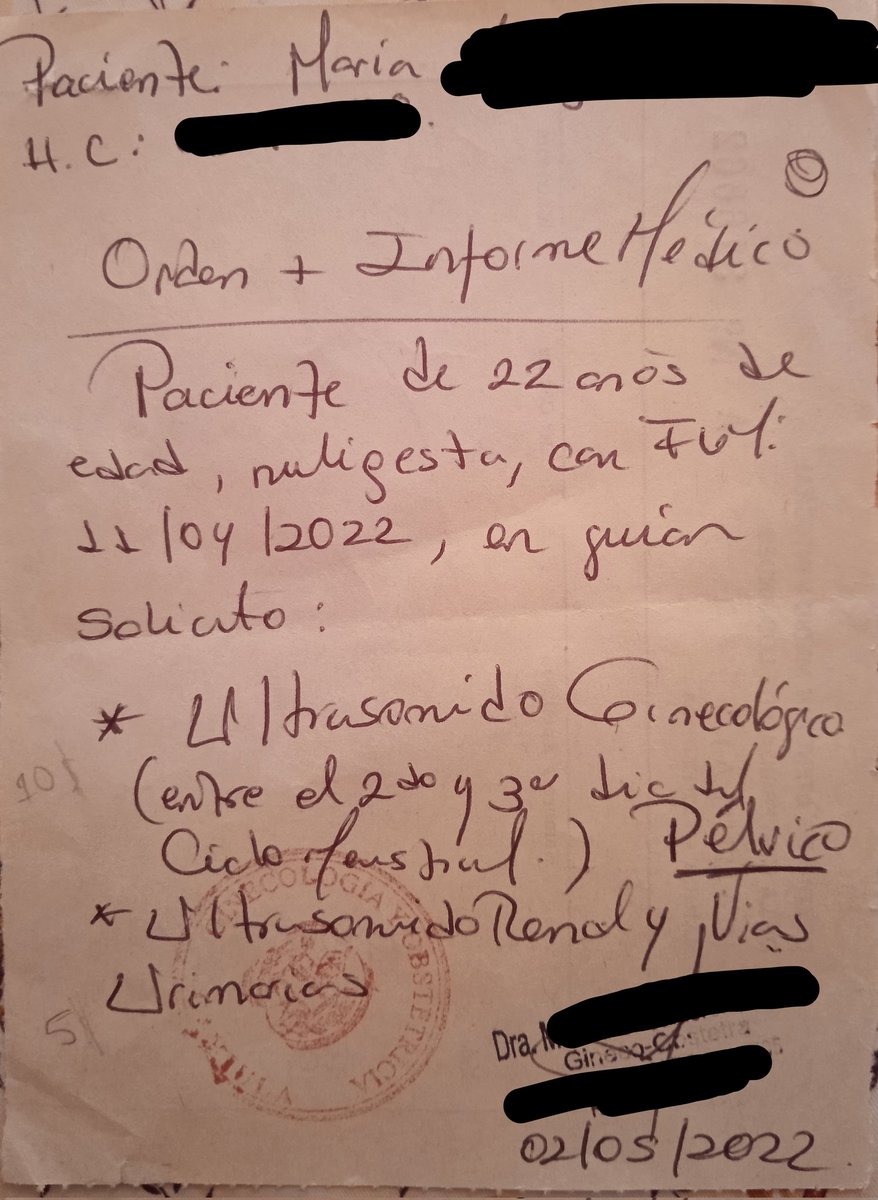 Paciente: Maria
H.C:
Orden + Informe Médico
Paciente de 22 años de
edad, nuligesta, con FUM:
11/04/2022, en quién
Solicito:
* Ultrasonido Ginecológico
(entre el 2do y 3er dia del
Ciclo Menstrual.) Pélvico
* Ultrasonido Renal y Vias
Urinarias
10$
5$
GINECOLOGIA Y OBSTETRICIA
Dra. M
Gineco-Obstetra
02/05/2022